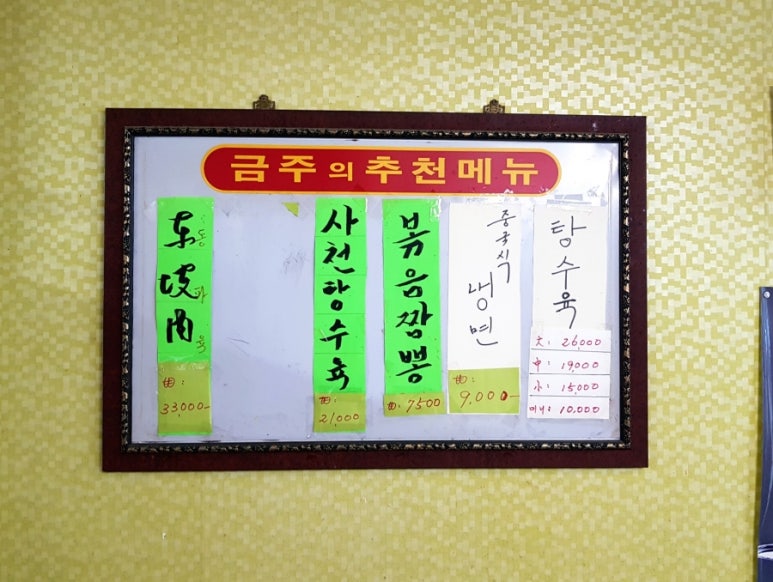 금주의 추천메뉴
东坡肉
동파육
33,000-
사천탕수육
21,000
볶음짬뽕
7500
중국식 냉면
9,000-
탕수육
大: 26,000
中: 19,000
小: 15,000
미니: 10,000